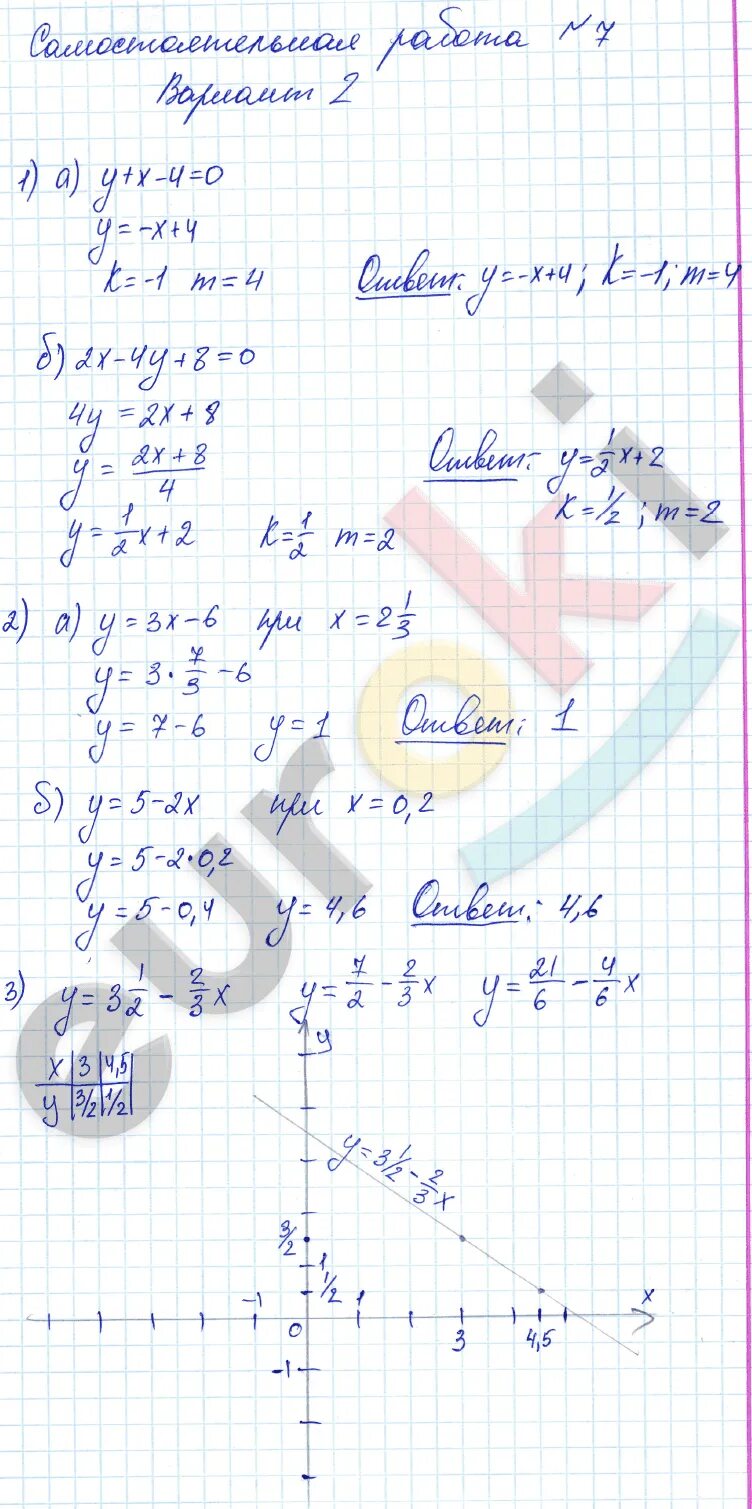 Самостоятельная работа №7
Вариант 2
1) а) y+x-4=0
y=-x+4
k=-1 m=4 Ответ: y=-x+4; k=-1; m=4
б) 2x-4y+8=0
4y=2x+8
y=(2x+8)/4 Ответ: y=1/2x+2
k=1/2; m=2
y=1/2x+2 k=1/2 m=2
2) а) y=3x-6 при x=2 1/3
y=3·7/3-6
y=7-6 y=1 Ответ: 1
б) y=5-2x при x=0,2
y=5-2·0,2
y=5-0,4 y=4,6 Ответ: 4,6
3) y=3 1/2-2/3x y=7/2-2/3x y=21/6-4/6x
x 3 4,5
y 3/2 1/2
y
y=3 1/2-2/3x
3/2
1
1/2
-1 0 1 3 4,5 x
-1
euroki